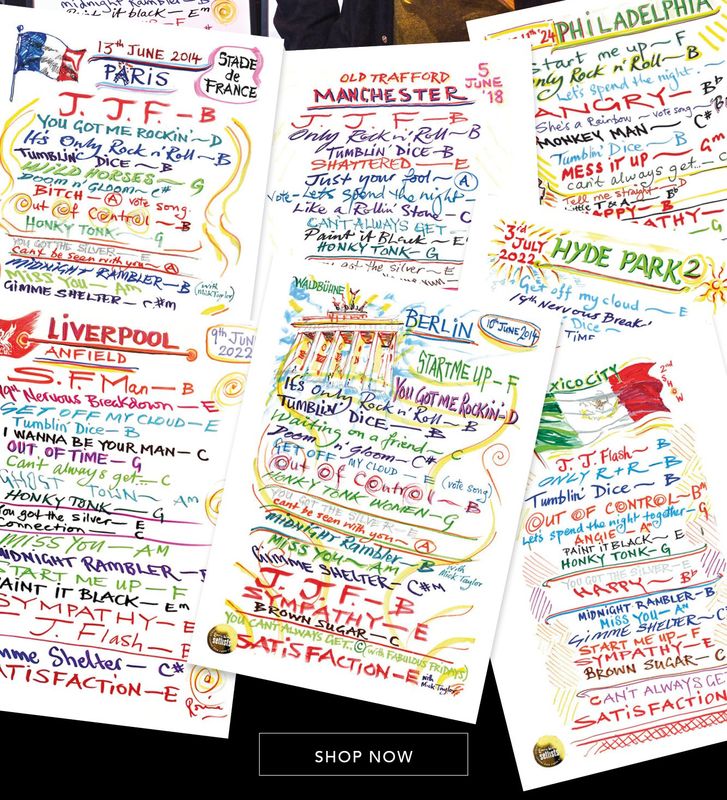 midnight Rambler - B
Paint it black - Em
13TH JUNE 2014
PARIS
STADE
de
FRANCE
J. J. F. - B
YOU GOT ME ROCKIN' - D
It's Only Rock n' Roll - B
TUMBLIN' DICE - B
WILD HORSES - G
DOOM n' GLOOM - C#
BITCH - A vote song
Out of Control - B
HONKY TONK - G
YOU GOT THE SILVER - E
Cant be seen with you - A
MIDNIGHT RAMBLER - B (with Mick Taylor)
MISS YOU - Am
GIMME SHELTER - C#m
OLD TRAFFORD
MANCHESTER
5
JUNE
'18
J. J. F. - B
Only Rock n' Roll - B
TUMBLIN' DICE - B
SHATTERED - E
Just your fool - A
Vote - Let's spend the night -
Like a Rollin' Stone - C
CAN'T ALWAYS GET
Paint it Black - E
HONKY TONK - G
got the silver - E
'24
PHILADELPHIA
Start me up - F
Only Rock n' Roll - B
Let's spend the night.
ANGRY -
She's a Rainbow - vote song -
MONKEY MAN - C#
Tumblin' Dice - B
MESS IT UP - Gm
can't always get... - C
Tell me straight - D
Little T & A - B
HAPPY - Bb
SYMPATHY -
3rd
JULY
2022
HYDE PARK 2
Get off my cloud - E
19th Nervous Break'
Dice -
TIME
LIVERPOOL
ANFIELD
9TH JUNE
2022
S. F. Man - B
19th Nervous Breakdown - E
GET OFF MY CLOUD - E
Tumblin' Dice - B
I WANNA BE YOUR MAN - C
OUT OF TIME - G
Cant always get... - C
GHOST TOWN - Am
HONKY TONK - G
You got the silver - E
Connection - C
MISS YOU - AM
MIDNIGHT RAMBLER - B
START ME UP - F
PAINT IT BLACK - Em
SYMPATHY - E
J. Flash - B
Gimme Shelter - C#
SATISFACTION - E
Ronnie
WALDBÜHNE
BERLIN
10TH JUNE 2014
START ME UP - F
YOU GOT ME ROCKIN - D
It's Only Rock n' Roll - B
TUMBLIN' DICE - B
Waiting on a friend - C
Doom n' gloom - C#
GET OFF MY CLOUD - E (vote song)
Out of Control - B
HONKY TONK WOMEN - G
YOU GOT THE SILVER - E
cant be seen with you - A
MIDNIGHT Rambler - B with Mick Taylor
MISS YOU - Am
GIMME SHELTER - C#M
J. J. F. - B
SYMPATHY - E
BROWN SUGAR - C
YOU CANT ALWAYS GET.. C (with FABULOUS FRIDAYS)
SATISFACTION - E with Mick Taylor
setlists
MEXICO CITY
2nd SHOW
J. J. Flash - B
ONLY R + R - B
Tumblin' Dice - B
OUT OF CONTROL - Bm
Lets spend the night together - G
ANGIE - Am
PAINT IT BLACK - E
HONKY TONK - G
YOU GOT THE SILVER - E
HAPPY - Bb
MIDNIGHT RAMBLER - B
MISS YOU - Am
GIMME SHELTER - C#
START ME UP - F
SYMPATHY - E
BROWN SUGAR - C
CAN'T ALWAYS GET
SATISFACTION
setlists
SHOP NOW